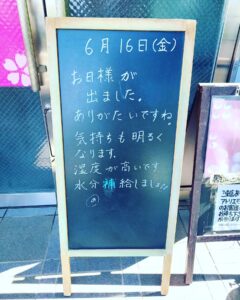 6月16日(金)
お日様が
出ました。
ありがたいですね。
気持ちも明るく
なります。
湿度が高いです
水分補給しましょう